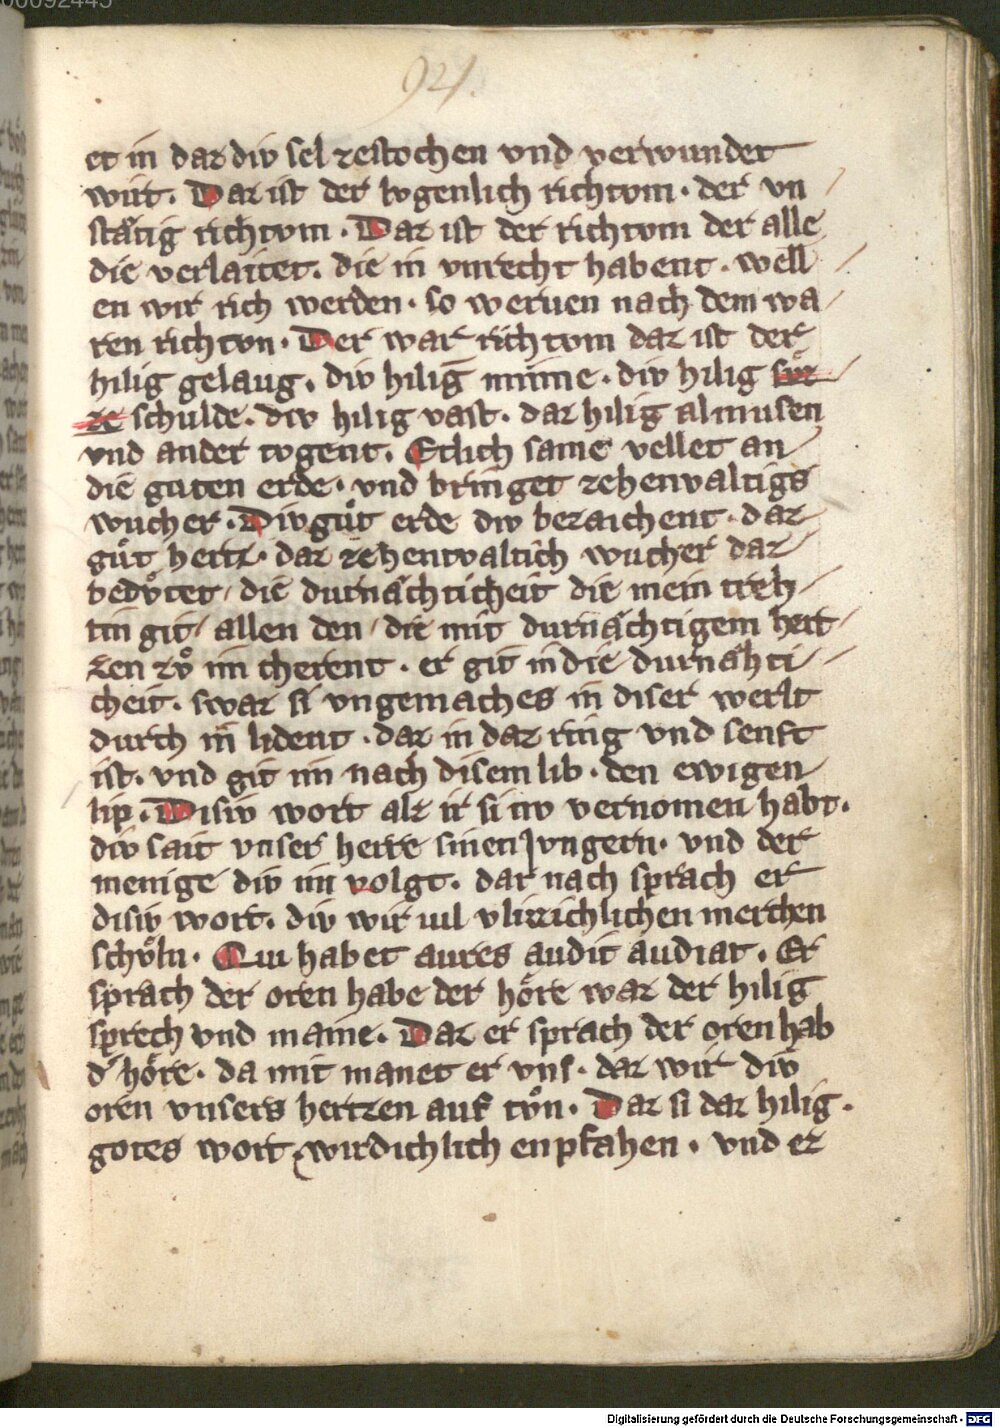 00092445
92.
et in daz div sel zestochen vnd verwundet
wirt. Daz ist der logenlich richtom. der vn
stätig richtom. Daz ist der richtom der alle
die verlaitet. die in vnrecht habent. well
en wir rich werden. so weruen nach dem wa
ren richton. Der war richtom daz ist der
hilig gelaug. div hilig minne. div hilig sv̊z
ze schulde. div hilig vast. daz hilig almusen
vnd ander togent. Etlich same vellet an
die guten erde. vnd bringet zehenvaltigs
wucher. Div gůt erde div bezaichent. daz
gůt hertz. daz zehentvaltich wucher daz
bedv̊tet die durnächticheit die mein treh
tin git allen den die mit durnächtigem hert
zen zv̊ im cherent. er git in die durnähti
cheit. swaz si vngemaches in diser werlt
durch in lident. daz in daz ring vnd senft
ist. vnd git im nach disem lib. den ewigen
lip. Disiv wort alz ir si iw vernomen habt.
div sait vnser herre sinen Jvngern. vnd der
menige div im volgt. dar nach sprach er
disiv wort. div wir uil vlizzichlichen merchen
schůln. Qui habet aures audit audiat. Er
sprach der oren habe der höre waz der hilig
sprech vnd maine. Daz er sprach der oren hab
d' höre. da mit manet er vns. daz wir div
oren vnsers hertzen auf tv̊n. Daz si daz hilig.
gotes wort wirdichlich enpfahen. vnd ez
Digitalisierung gefördert durch die Deutsche Forschungsgemeinschaft - DFG